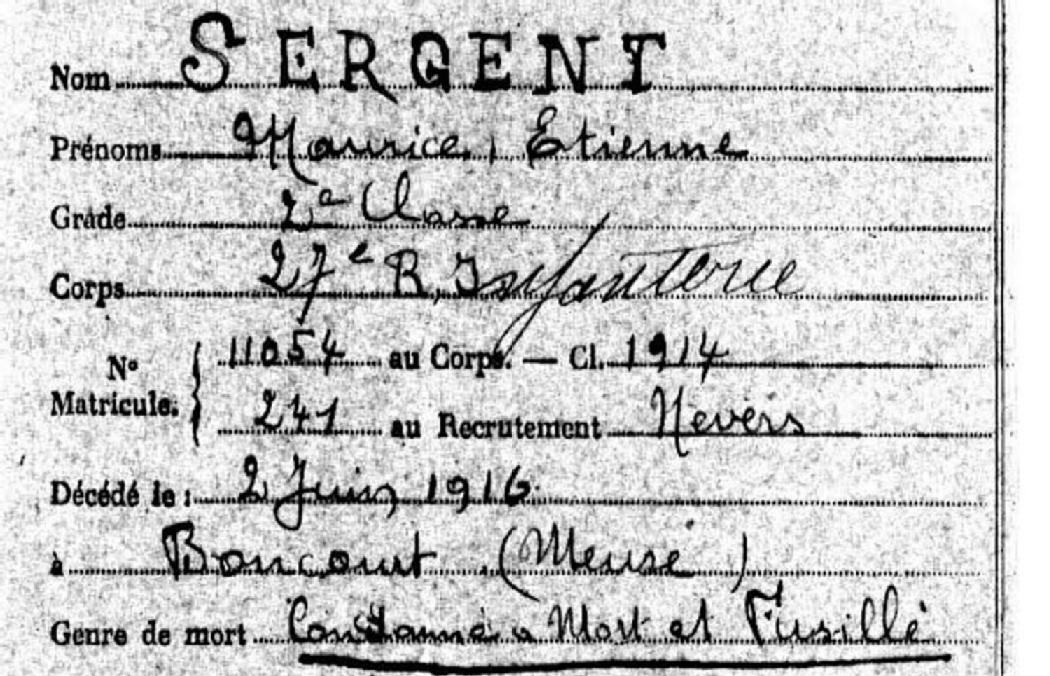 Nom SERGENT
Prénoms Maurice, Etienne
Grade 2e Classe
Corps 27e R. Infanterie
N° Matricule. { 11054 au Corps. — Cl. 1914
241 au Recrutement Nevers
Décédé le : 2 Juin 1916
à Boncourt (Meuse)
Genre de mort Condamné à Mort et Fusillé